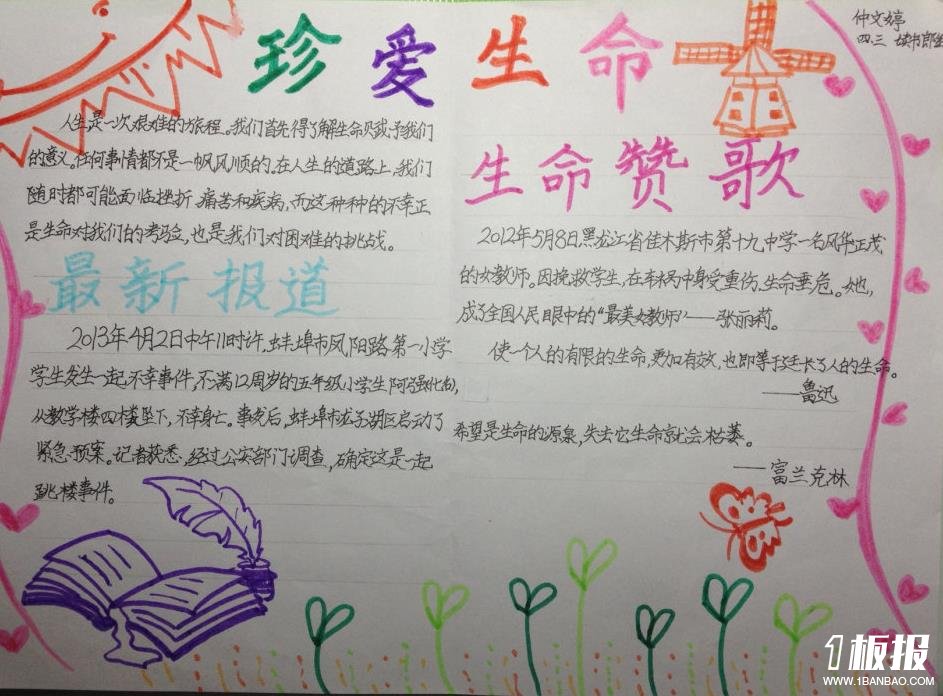 珍爱生命
仲文婷
四.三
人生是一次艰难的旅程。我们首先得了解生命赋予我们
的意义。任何事情都不是一帆风顺的。在人生的道路上,我们
随时都可能面临挫折 痛苦和疾病,而这种种的不幸正
是生命对我们的考验,也是我们对困难的挑战。
最新报道
2013年4月2日中午11时许,蚌埠市凤阳路第一小学
学生发生一起不幸事件,不满12周岁的五年级小学生阿强(化名),
从教学楼四楼坠下,不幸身亡。事发后,蚌埠市龙子湖区启动了
紧急预案。记者获悉,经过公安部门调查,确定这是一起
跳楼事件。
生命赞歌
2012年5月8日黑龙江省佳木斯市第十九中学一名风华正茂
的女教师。因挽救学生,在车祸中身受重伤,生命垂危。她,
成了全国人民眼中的“最美女教师”——张丽莉。
使一个人的有限的生命,更加有效,也即等于延长了人的生命。
——鲁迅
希望是生命的源泉,失去它生命就会枯萎。
——富兰克林
1板报
WWW.1BANBAO.COM